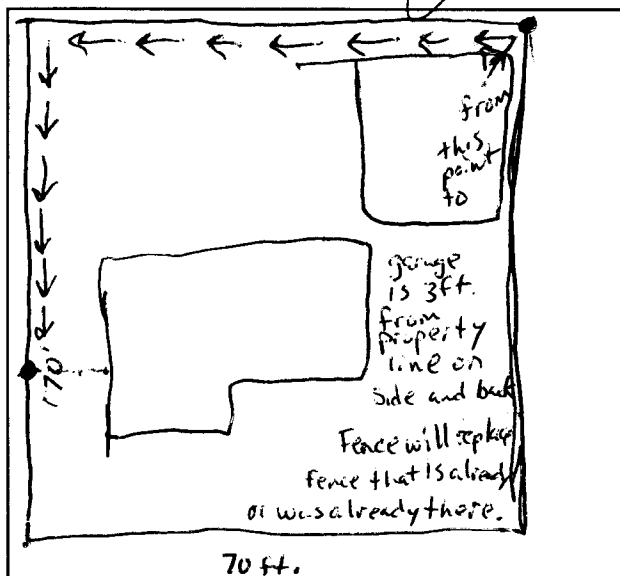 from
this
point
to
garage
is 3ft.
from
property
line on
side and back
170'
Fence will replace
fence that is already
or was already there.
70 ft.